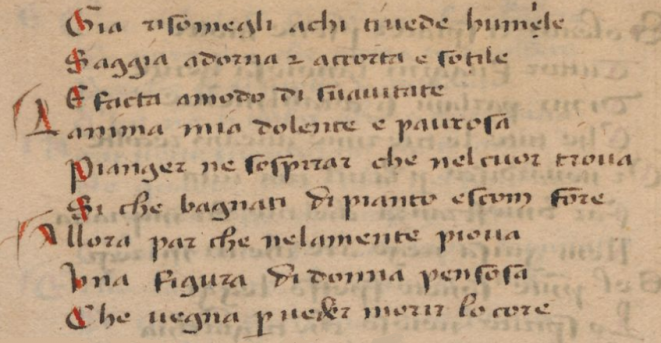 Gia risomegli achi tivede humele
Saggia adorna ⁊ accorta e sotile
E facta amodo di suauitate
Lanima mia dolente e paurosa
Pianger ne sospirar che nelcuor troua
Si che bagnati di pianto escom fore
Allora par che nelamente pioua
Una figura di donna pensosa
Che uegna p ueder morir lo core